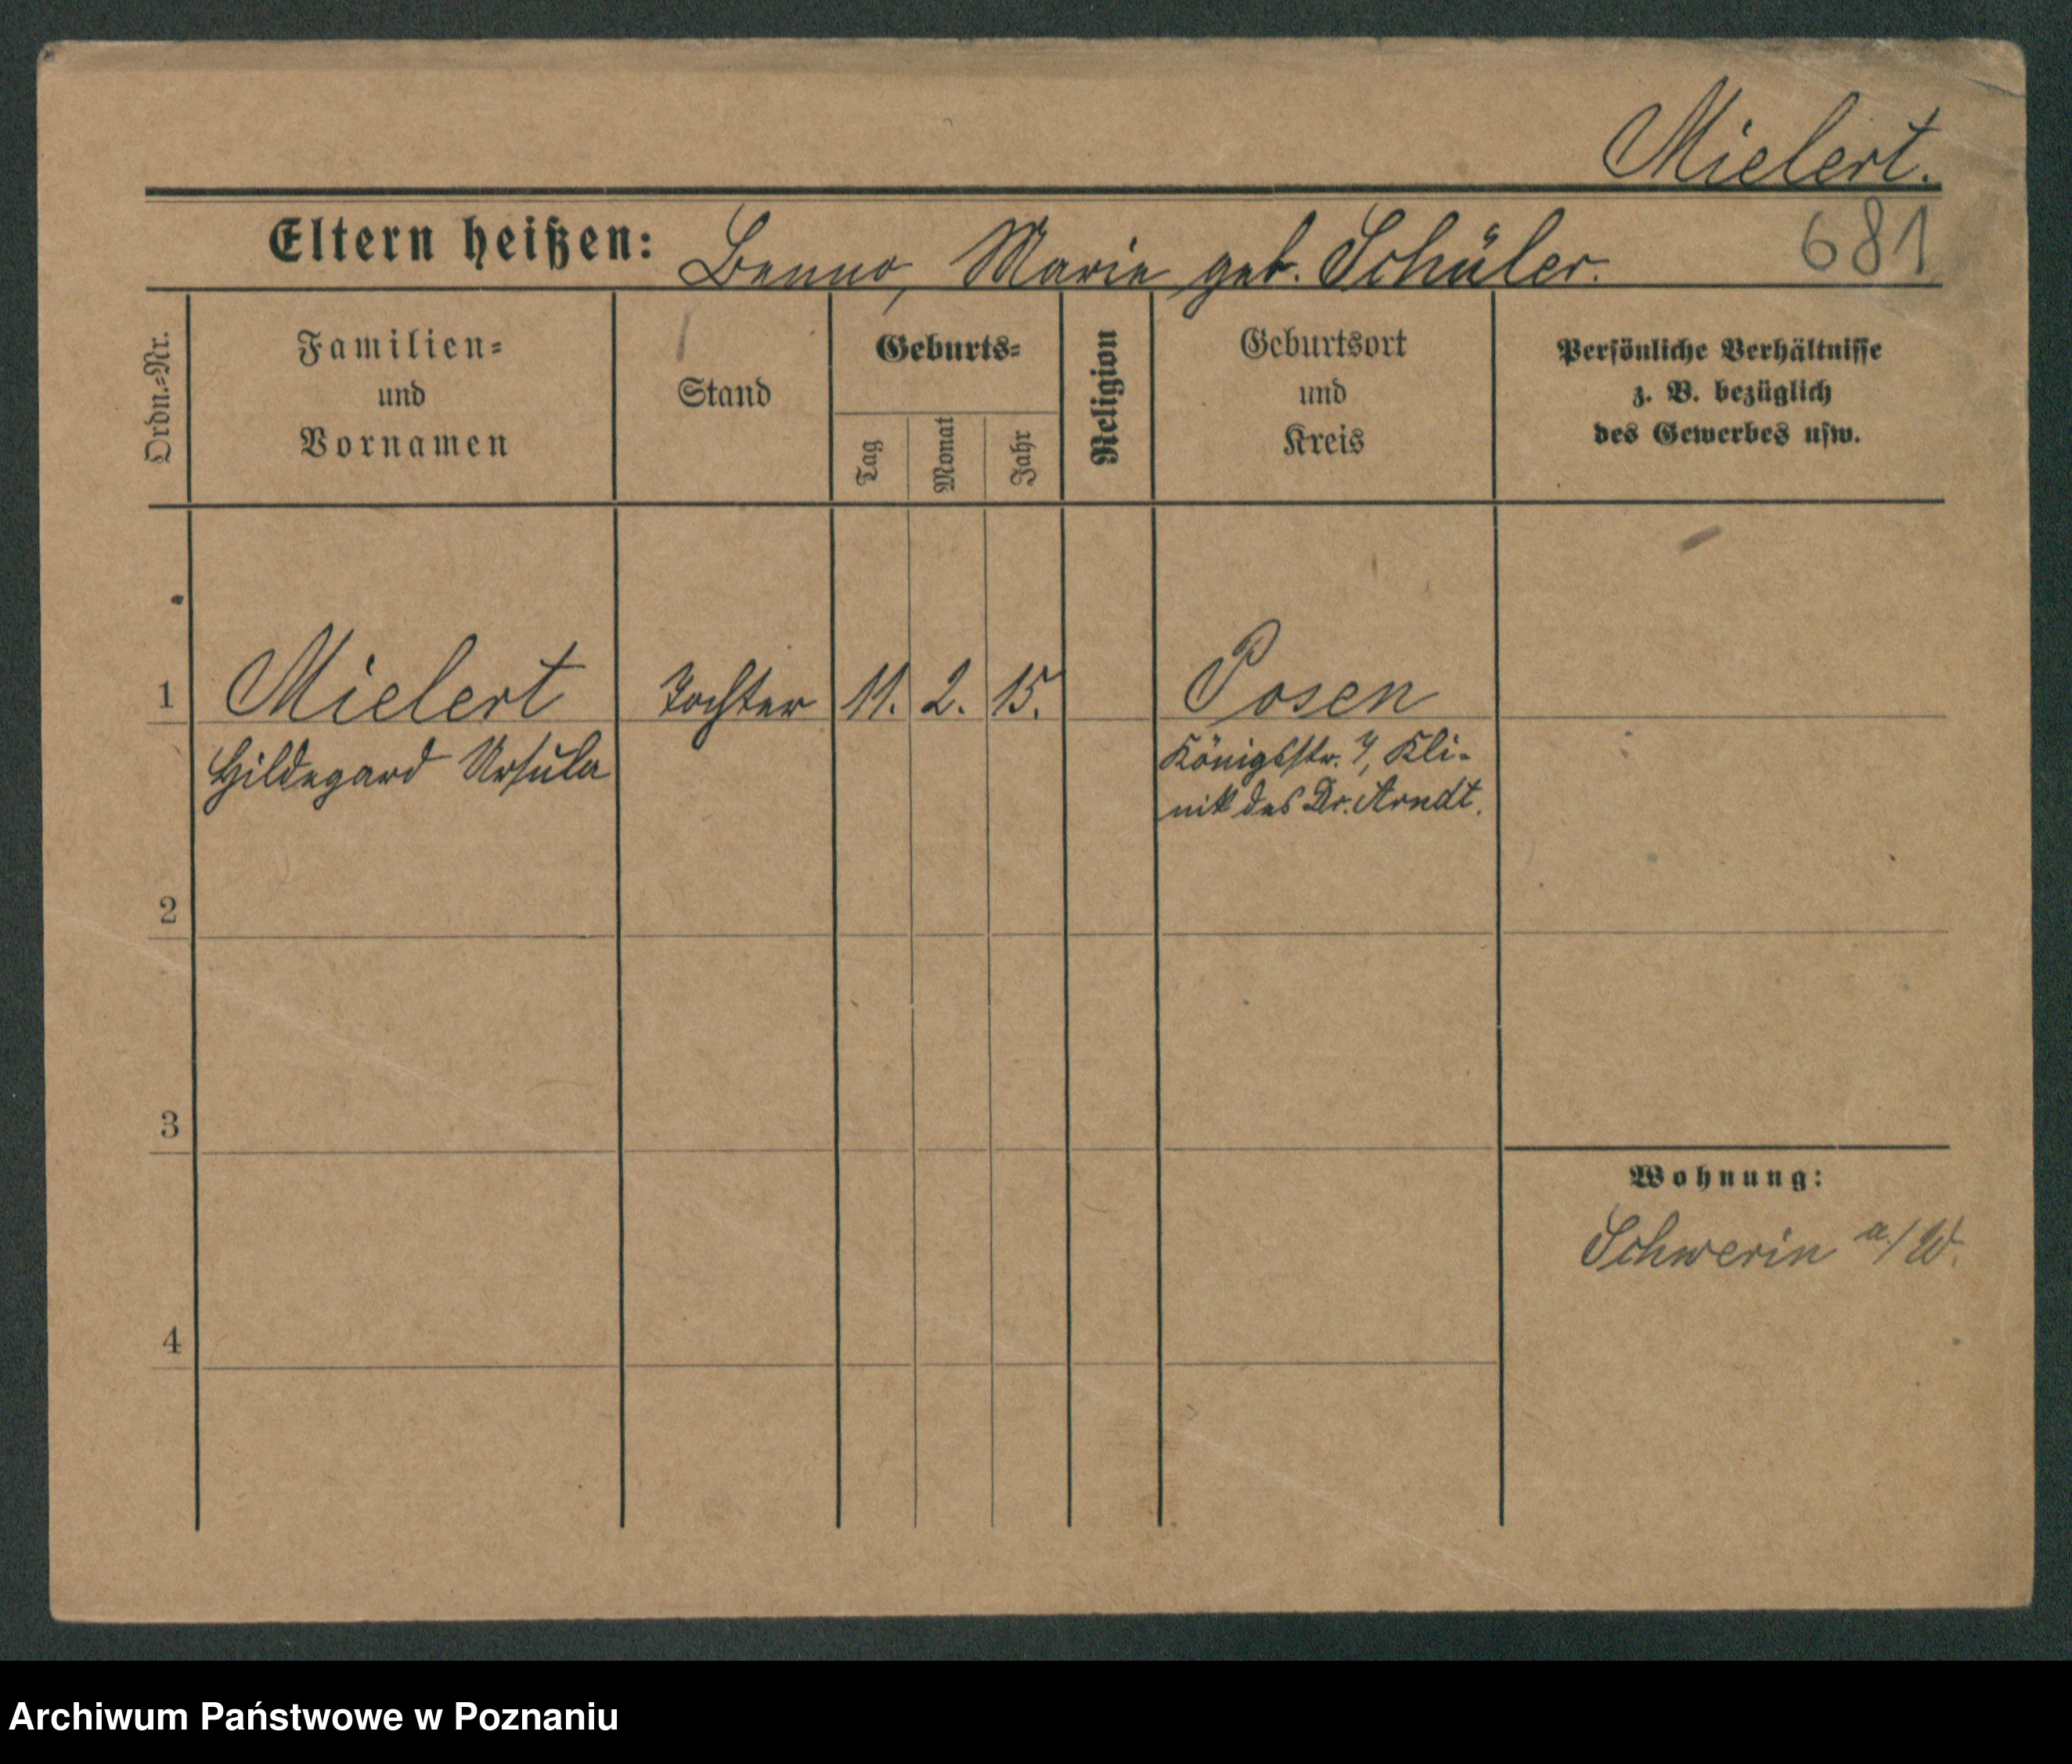 Mielert.
Eltern heißen: Benno, Marie geb. Schüler.
681
Ordn.=Nr.
Familien=
und
Vornamen
Stand
Geburts=
Tag
Monat
Jahr
Religion
Geburtsort
und
Kreis
Persönliche Verhältnisse
z. B. bezüglich
des Gewerbes usw.
1 Mielert Tochter 11. 2. 15. Posen
Hildegard Ursula
Königsstr. , Kli-
nik des Dr. Arndt.
2
3
Wohnung:
Schwerin a/W.
4
Archiwum Państwowe w Poznaniu